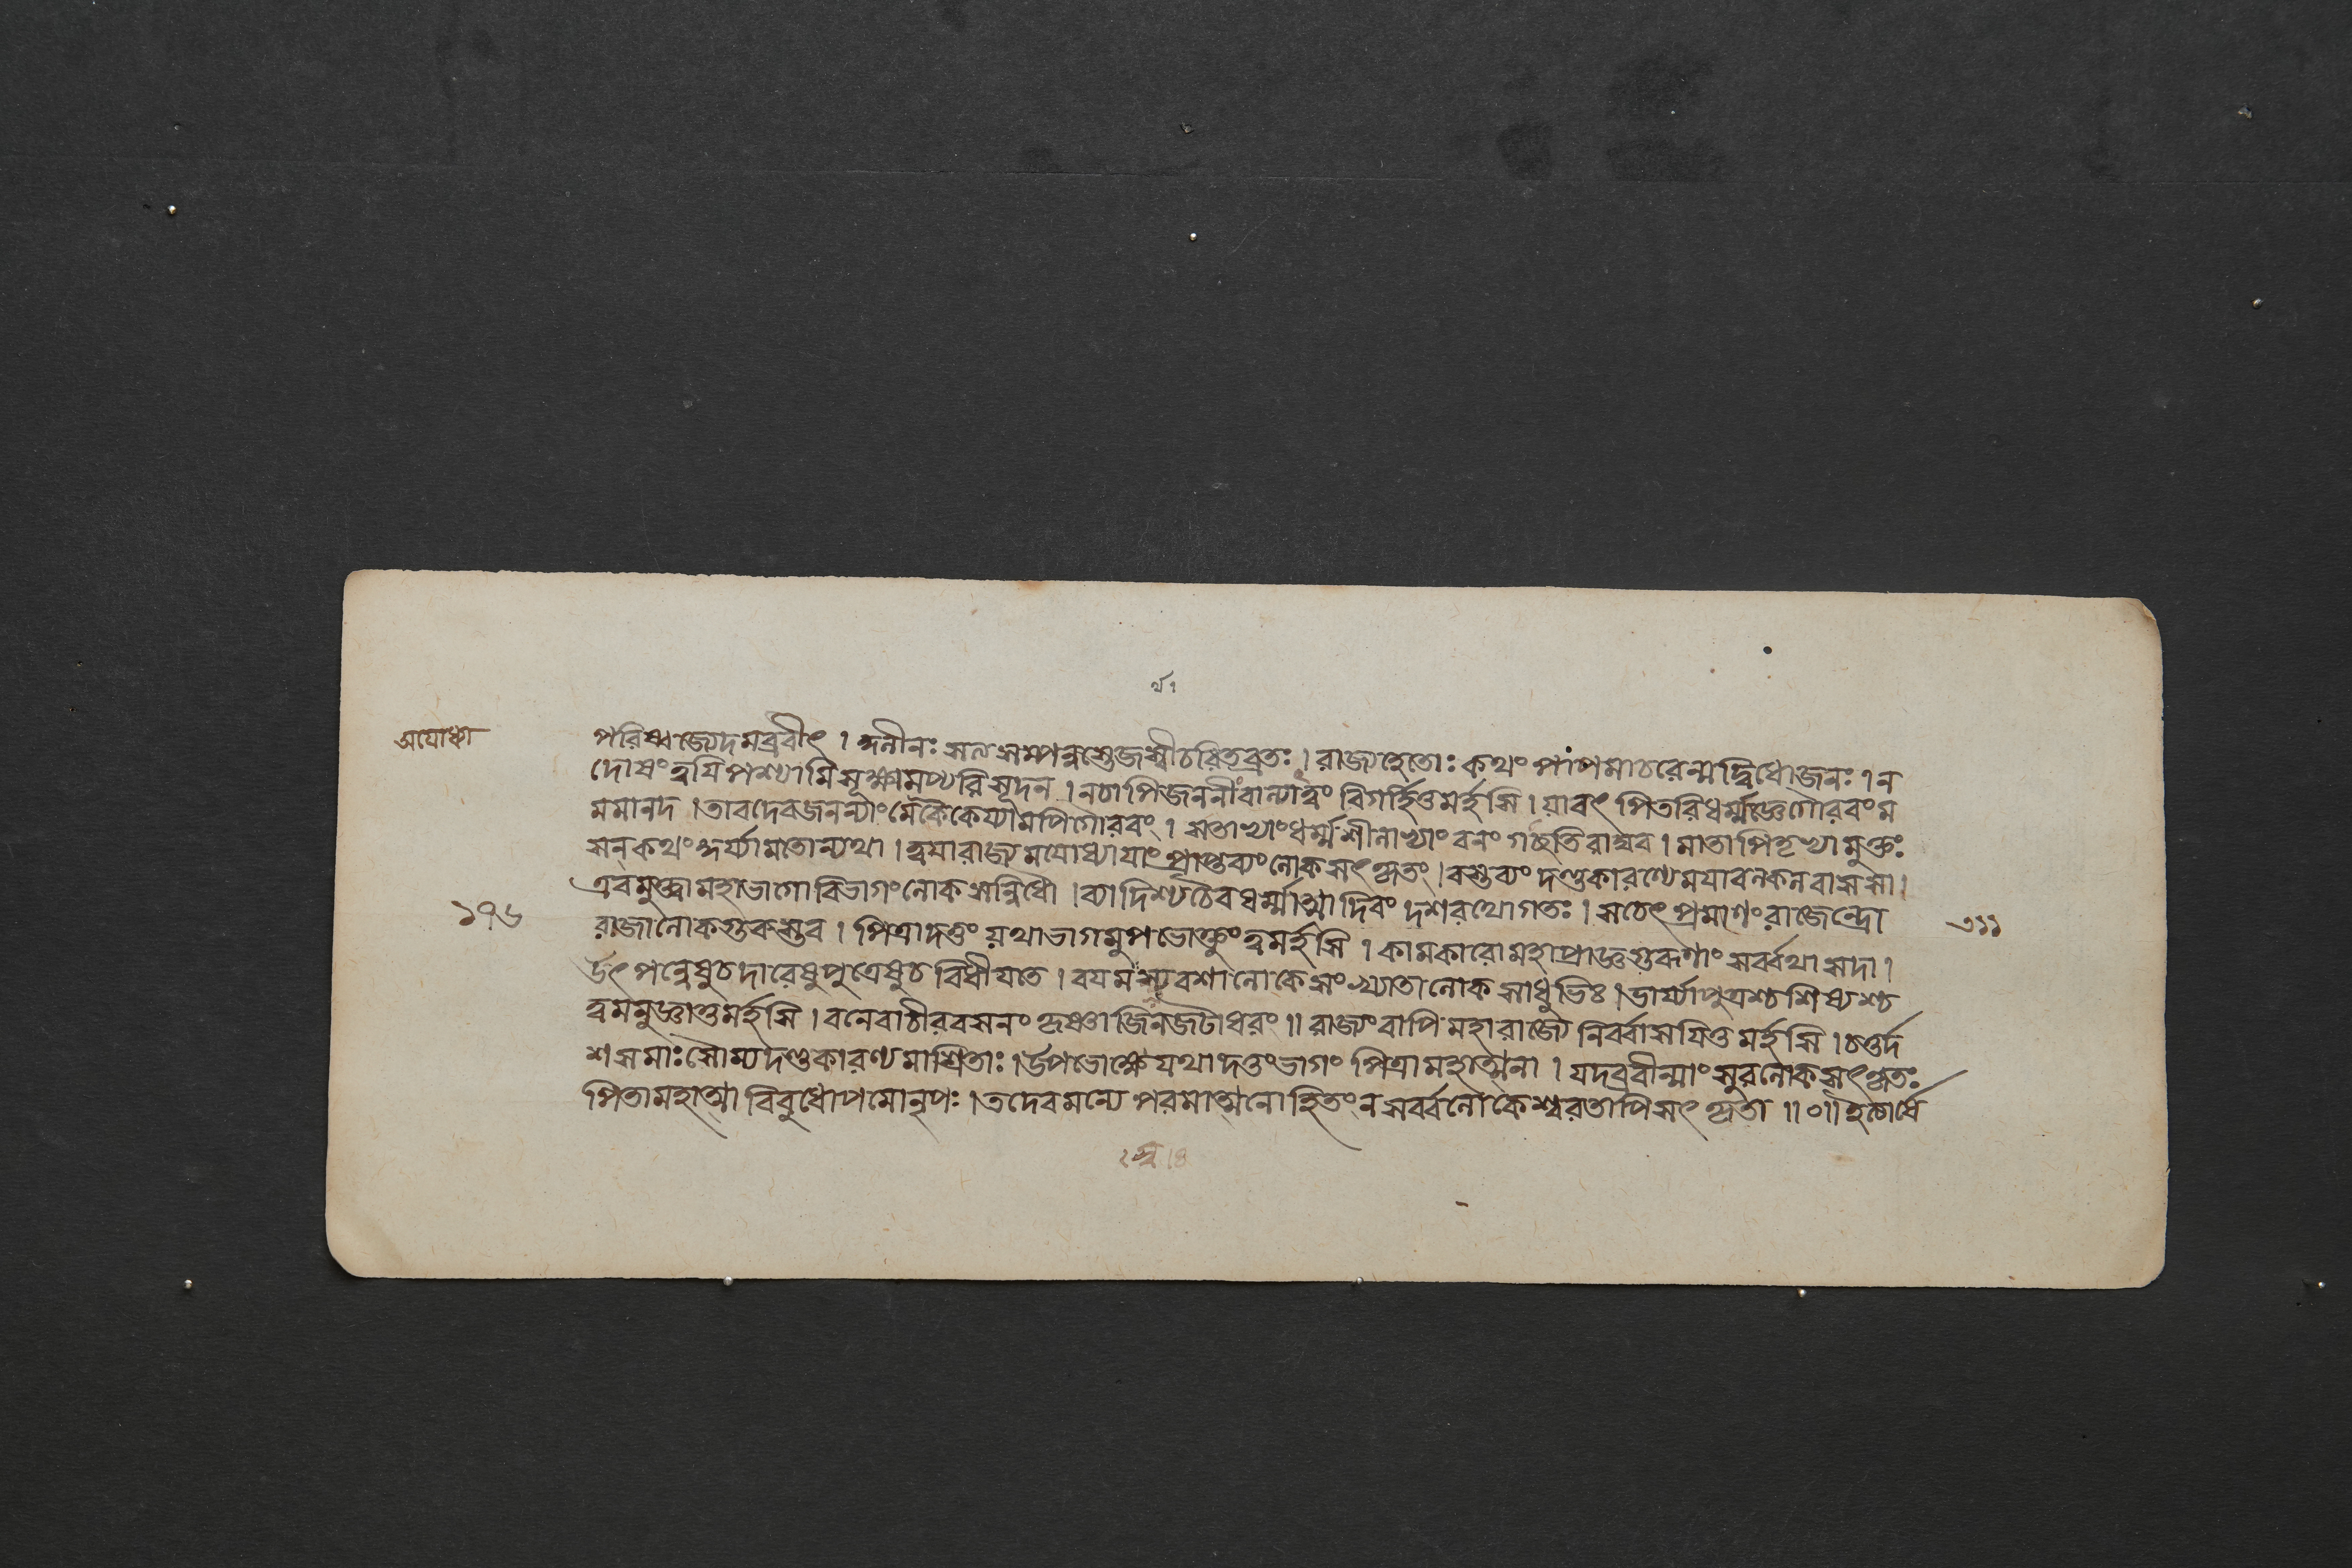 র্থ१
অযোধ্যা
পরিষ্বজ্যেদমব্রবীৎ । কুলীনঃ সত্বসম্পন্নস্তেজস্বীচরিতব্রতঃ । রাজ্যহেতোঃ কথং পাপমাচরেন্মদ্বিধোজনঃ । ন
দোষংত্বযিপশ্যামিসূক্ষ্মমপ্যরিসূদন । নচাপিজননীংবাল্যাত্ত্বং বিগর্হিতুমর্হসি । যাবৎ পিতরিধর্ম্মজ্ঞেগৌরবং ম
মমানদ । তাবদেবজনন্যাংমেকৈকেয্যামপিগৌরবং । এতাভ্যাংধর্ম্মশীলাভ্যাং বনং গচ্ছেতিরাঘব । মাতাপিতৃভ্যামুক্তঃ
সন্ কথং কুর্য্যামতোন্যথা । ত্বযারাজ্যমযোধ্যাযাং প্রাপ্তব্যংলোকসৎকৃতং । বস্তব্যং দণ্ডকারণ্যেমযাবল্কলবাসসা ।
এবমুক্ত্বামহাভাগোবিভাগংলোকসন্নিধৌ । ব্যাদিশ্যচৈবধর্ম্মাত্মাদিবং দশরথোগতঃ । সচেৎ প্রমাণংরাজেন্দ্রো
১৭৬
রাজালোকগুরুস্তব । পিত্রাদত্তং যথাভাগমুপভোক্তুংত্বমর্হসি । কামকারোমহাপ্রাজ্ঞগুরূণাং সর্ব্বথাসদা ।
উৎপন্নেষুচদারেষুপুত্রেষুচবিধীযতে । বযমস্যবশালোকেসংখ্যাতালোকসাধুভিঃ । ভার্য্যাপুত্রশ্চশিষ্যশ্চ
ত্বমনুজ্ঞাতুমর্হসি । বনেবাচীরবসনং কৃষ্ণাজিনজটাধরং ॥ রাজ্যংবাপিমহারাজ্যে নির্ব্বাসযিতুমর্হসি । চতুর্দ
শসমাঃসৌম্যদণ্ডকারণ্যমাশ্রিতঃ । উপভোক্ষ্যেযথাদত্তংভাগং পিত্রামহাত্মনা । যদব্রবীন্মাং সুরলোকসৎকৃতঃ
পিতামহাত্মা বিবুধোপমোনৃপঃ । তদেবমন্যেপরমাত্মনোহিতংনসর্ব্বলোকেশ্বরতাপিসৎকৃতা ॥০॥ ইত্যার্ষে